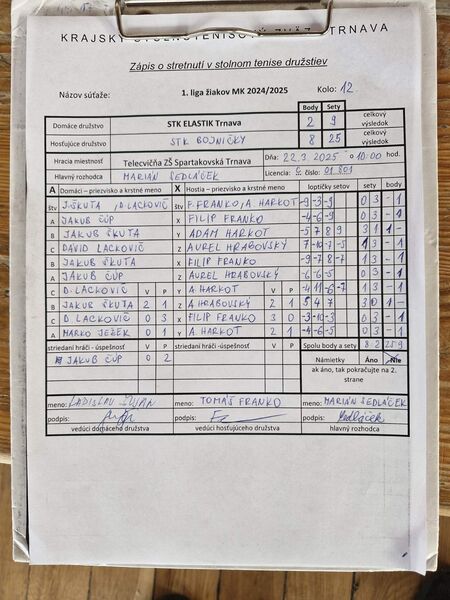 KRAJSKÝ STOLNOTENISOVÝ ZVÄZ TRNAVA
Zápis o stretnutí v stolnom tenise družstiev
Názov súťaže: 1. liga žiakov MK 2024/2025 Kolo: 12
Body Sety
Domáce družstvo STK ELASTIK Trnava 2 9 celkový výsledok
Hosťujúce družstvo STK BOJNIČKY 8 25 celkový výsledok
Hracia miestnosť Telecvičňa ZŠ Spartakovská Trnava Dňa: 22.3.2025 o 10:00 hod.
Hlavný rozhodca MARIÁN SEDLÁČEK Licencia: č. číslo: 01801
A Domáci – priezvisko a krstné meno X Hostia – priezvisko a krstné meno loptičky setov sety body
štv J. ŠKUTA, D. LACKOVIČ štv F. FRANKO, A. HARKOT -9 -3 -9 0 3 - 1
A JAKUB ČÚP X FILIP FRANKO -4 -6 -9 0 3 - 1
B JAKUB ŠKUTA Y ADAM HARKOT -5 7 8 9 3 1 1 -
C DAVID LACKOVIČ Z AUREL HRABOVSKÝ 7 -10 -7 -5 1 3 - 1
B JAKUB ŠKUTA X FILIP FRANKO -9 -7 8 -7 1 3 - 1
A JAKUB ČÚP Z AUREL HRABOVSKÝ -6 -6 -5 0 3 - 1
C D. LACKOVIČ V P Y A. HARKOT V P -4 11 -6 -7 1 3 - 1
B JAKUB ŠKUTA 2 1 Z A. HRABOVSKÝ 2 1 5 4 7 3 0 1 -
C D. LACKOVIČ 0 3 X FILIP FRANKO 3 0 -3 -10 -3 0 3 - 1
A MARKO JEŽEK 0 1 Y A. HARKOT 2 1 -4 -6 -5 0 3 - 1
striedaní hráči - úspešnosť V P striedaní hráči - úspešnosť V P Spolu body a sety 8 2 25 9
JAKUB ČÚP 0 2 Námietky Áno Nie
ak áno, tak pokračujte na 2. strane
meno: LADISLAV meno: TOMÁŠ FRANKO meno: MARIÁN SEDLÁČEK
podpis: podpis: podpis: Sedláček
vedúci domáceho družstva vedúci hosťujúceho družstva hlavný rozhodca